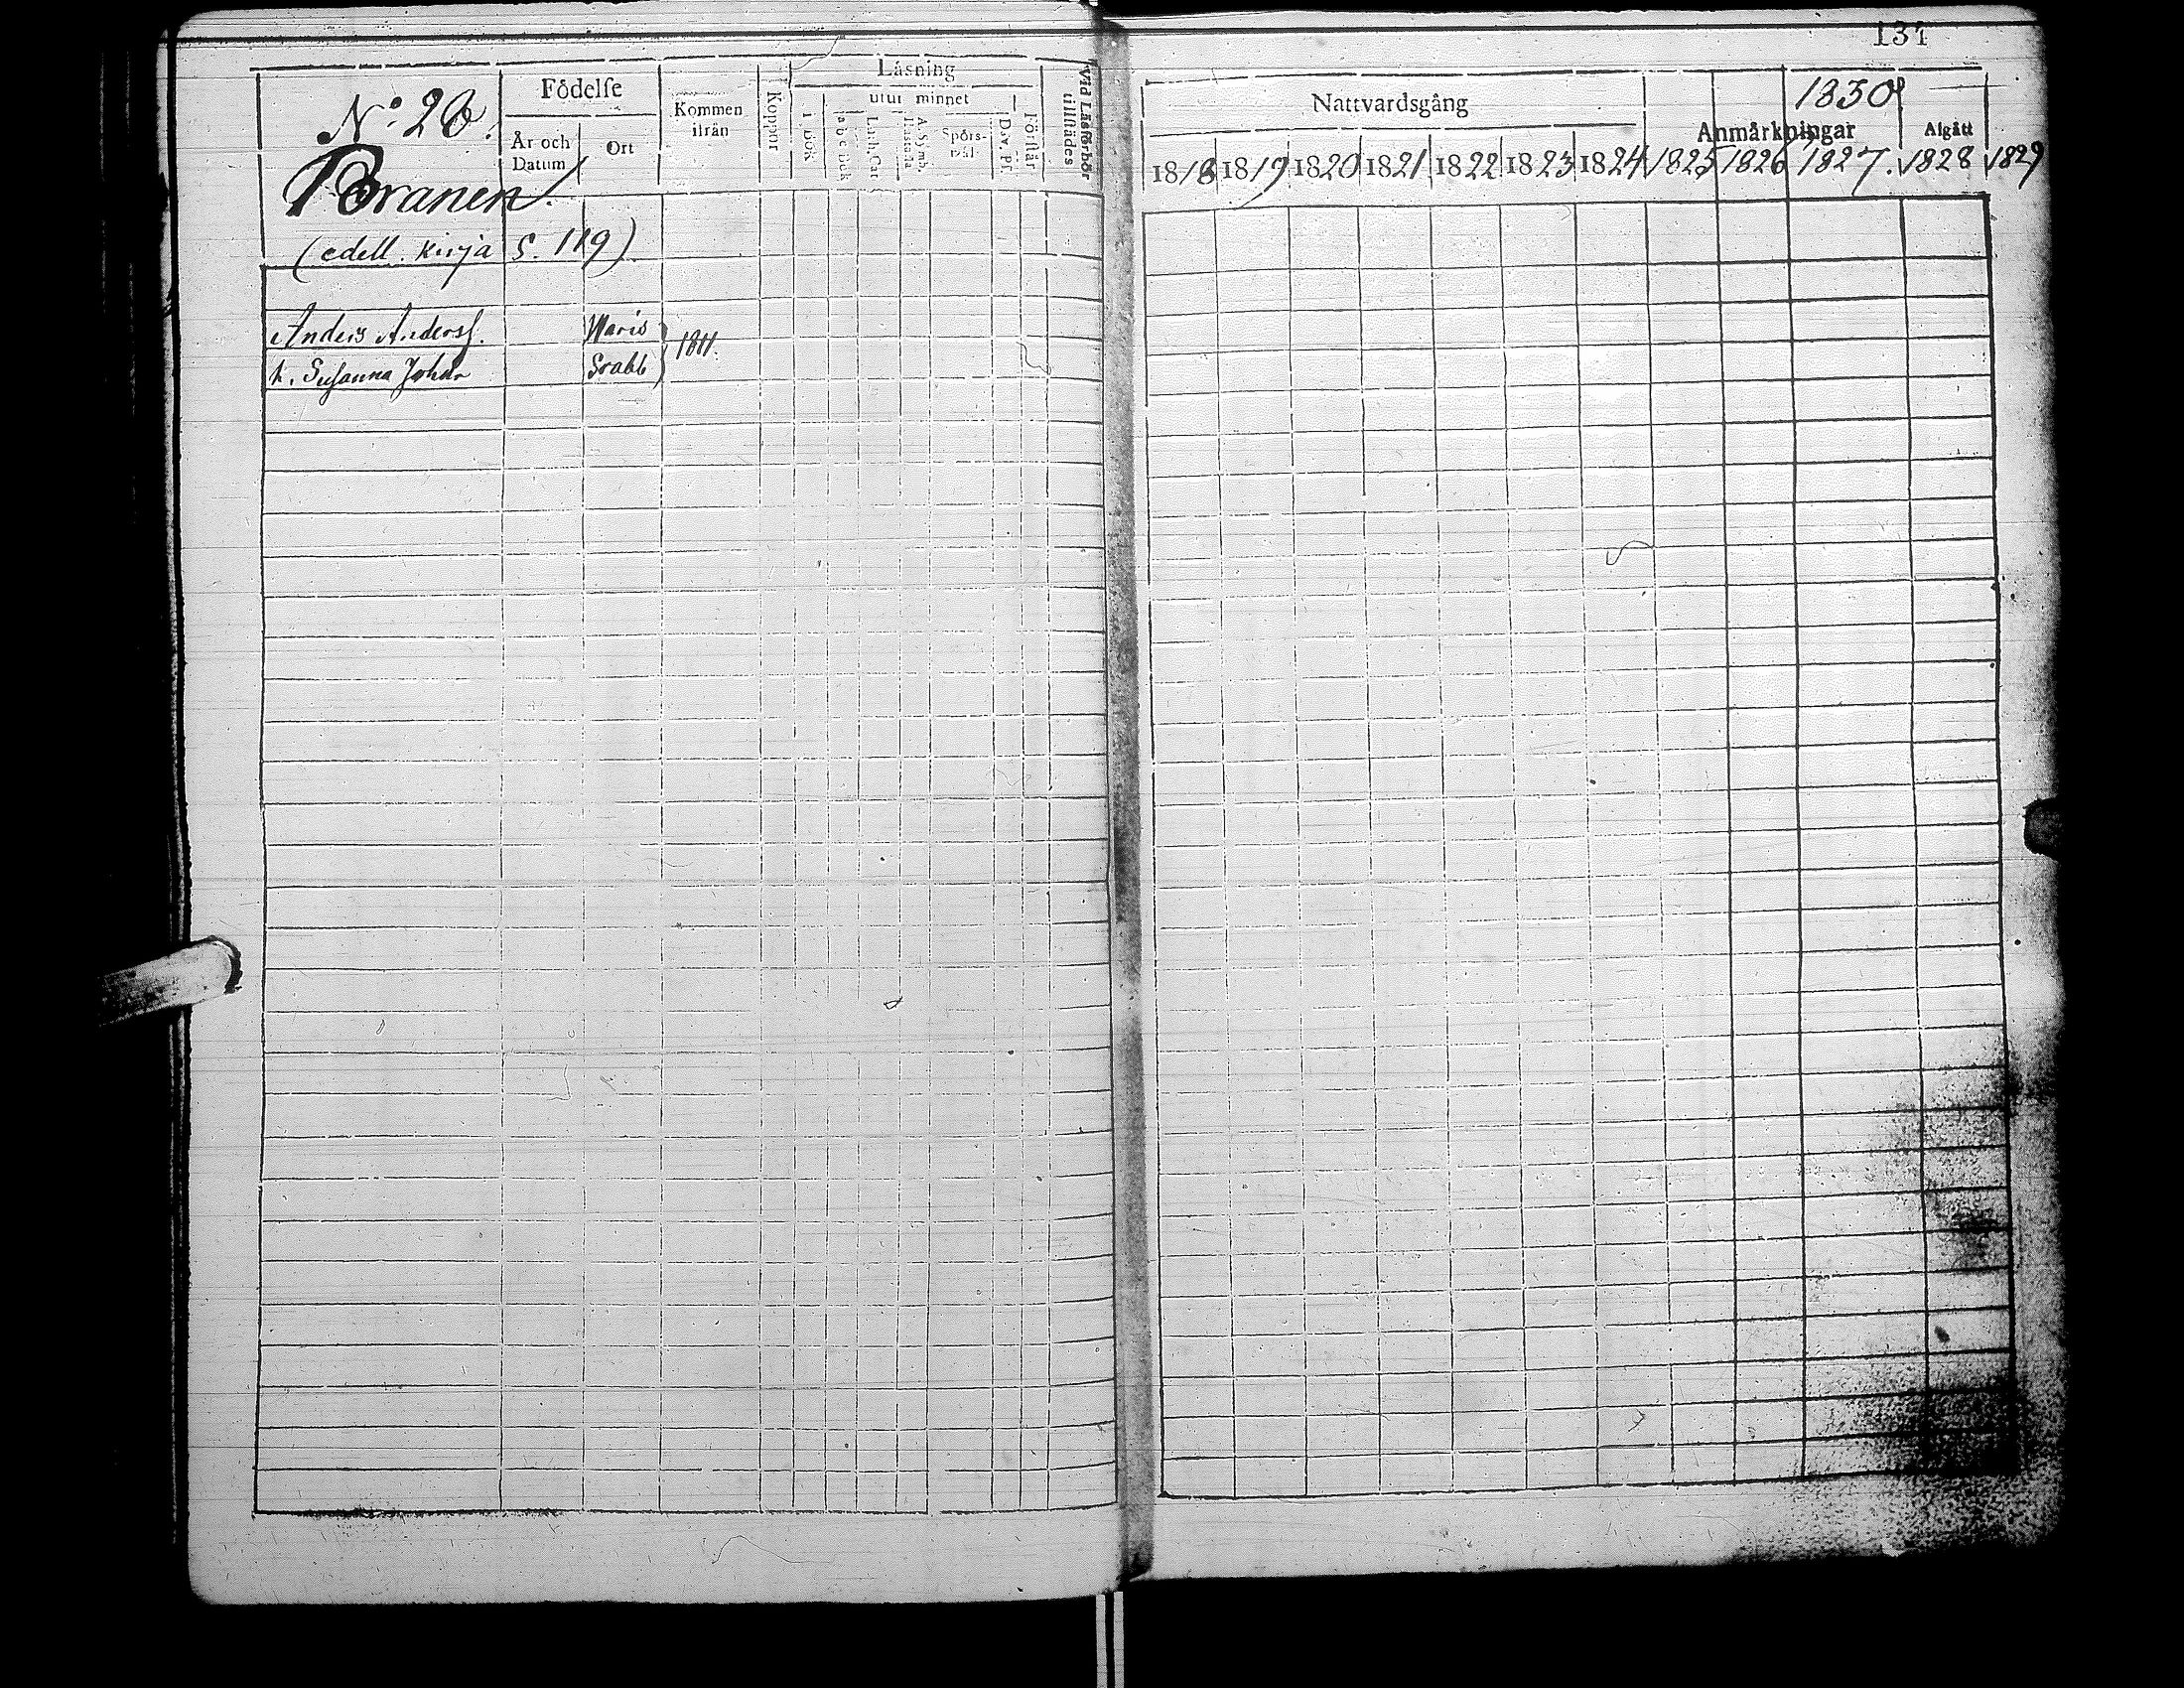 131
N:o 26.
Födelse
År och Datum
Ort
Kommen ifrån
Koppor
Läsning
utur minnet
i bok
a b c bok
Luth. Cat.
A. Symb. Hustafla
Spörs-mål
Dav. Ps.
Förstår
Vid Läsförhör tillstädes
Nattvardsgång
1830
Anmärkningar
Afgått
1818 1819 1820 1821 1822 1823 1824 1825 1826 1827. 1828 1829
Branen.
(edell. kirja s. 119)
Anders Anderss. Waris
1811.
h. Susanna Johdr Srabb